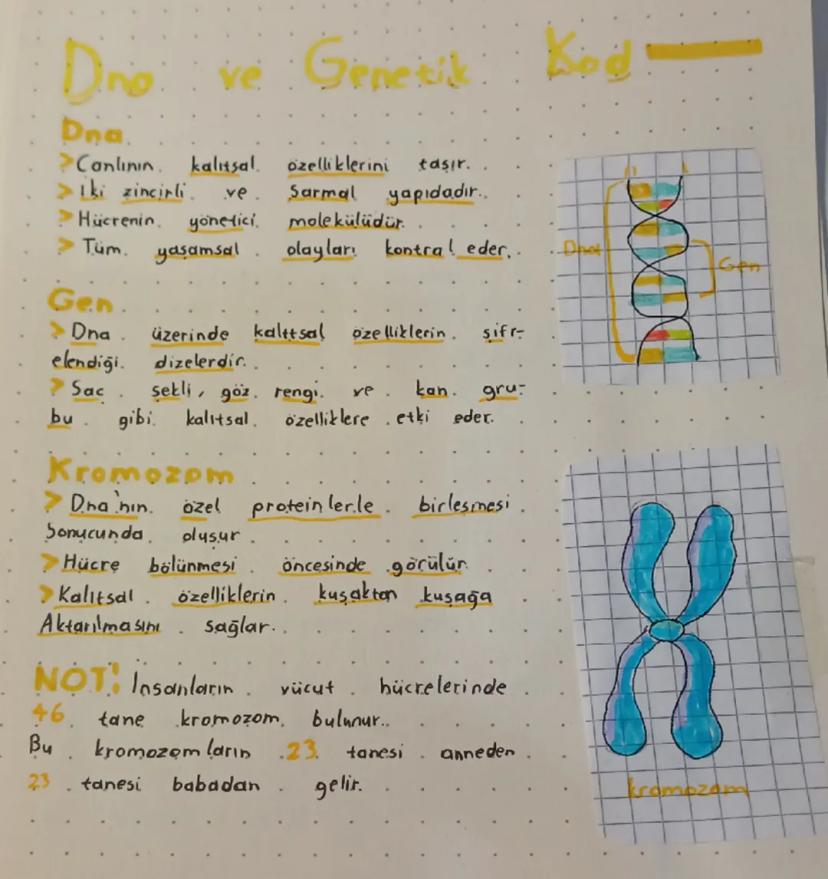 Dna ve Genetik Kod
Dna
> Canlının kalıtsal özelliklerini taşır.
> İki zincirli ve sarmal yapıdadır.
> Hücrenin yönetici molekülüdür.
> Tüm yaşamsal olayları kontral eder.
Gen
> Dna üzerinde kalıtsal özelliklerin şifr-
elendiği dizelerdir.
> Saç şekli, göz rengi ve kan gru-
bu gibi kalıtsal özelliklere etki eder.
Kromozom
> Dna'nın özel proteinlerle birleşmesi
sonucunda oluşur
> Hücre bölünmesi öncesinde görülür
> Kalıtsal özelliklerin kuşaktan kuşağa
Aktarılmasını sağlar.
NOT! İnsanların vücut hücrelerinde
46 tane kromozom bulunur.
Bu kromozomların 23 tanesi anneden
23 tanesi babadan gelir.
Dna
Gen
kromozom